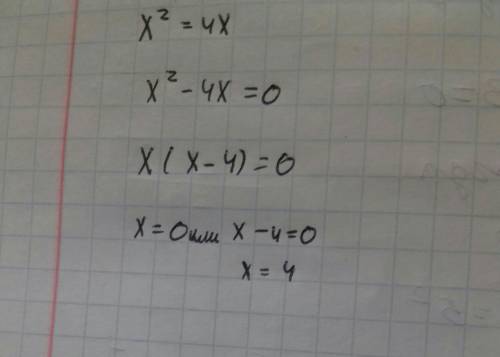 x² = 4x
x² - 4x = 0
x ( x - 4) = 0
x = 0 или x - 4 = 0
x = 4